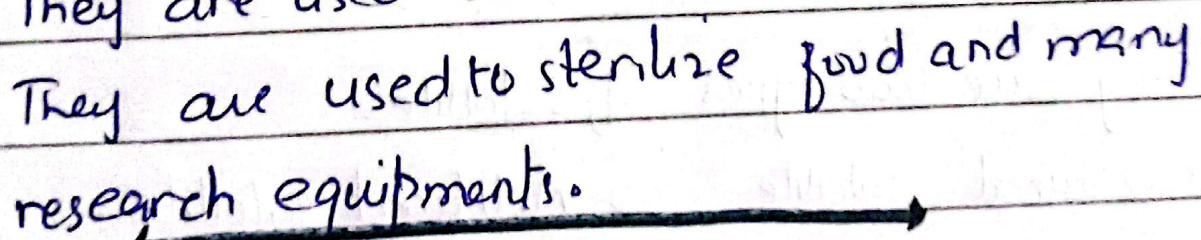 They are
They are used to sterilize food and many
research equipments.